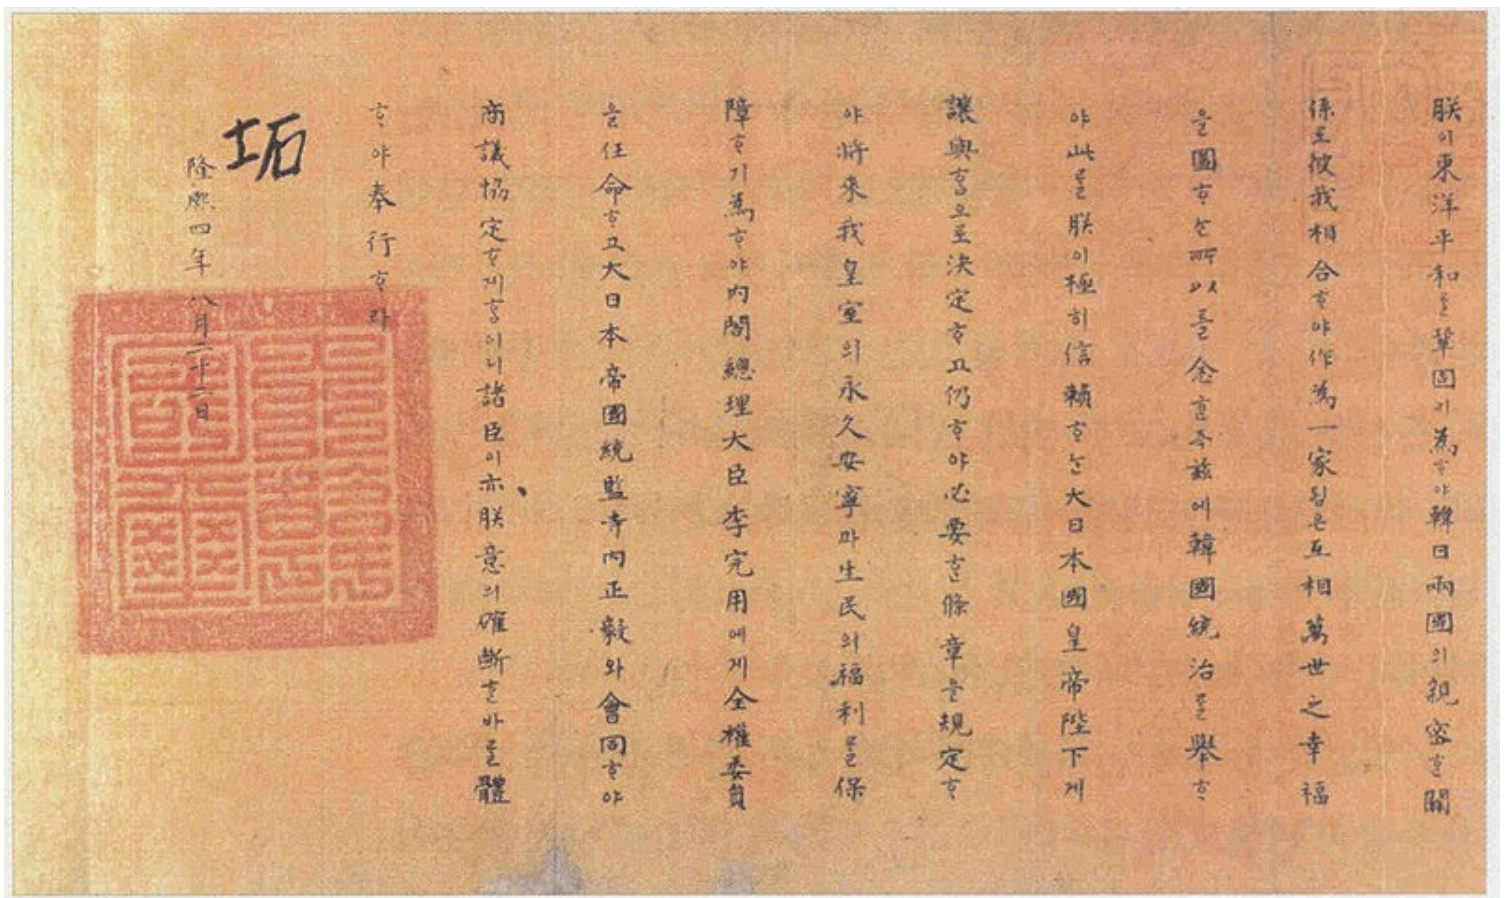 朕이東洋平和를鞏固키爲ᄒᆞ야韓日兩國의親密ᄒᆞᆫ關
係로彼我相合ᄒᆞ야作爲一家ᄒᆞᆷ은互相萬世之幸福
을圖ᄒᆞᄂᆞᆫ所以를念ᄒᆞᆫ즉玆에韓國統治를擧ᄒᆞ
야此를朕이極히信賴ᄒᆞᄂᆞᆫ大日本國皇帝陛下게
讓與ᄒᆞᆷ으로決定ᄒᆞ고仍ᄒᆞ야必要ᄒᆞᆫ條章을規定ᄒᆞ
야將來我皇室의永久安寧과生民의福利를保
障ᄒᆞ기爲ᄒᆞ야內閣總理大臣李完用에게全權委員
을任命ᄒᆞ고大日本帝國統監寺內正毅와會同ᄒᆞ야
商議協定ᄒᆞ게ᄒᆞᆷ이니諸臣이亦朕意의確斷ᄒᆞᆫ바를體
ᄒᆞ야奉行ᄒᆞ라
坧
隆熙四年八月二十二日